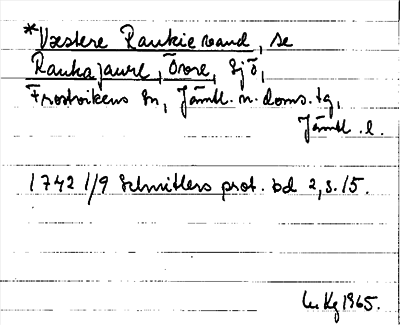 *Væstere Raukievand, se
Raukajaure, Övre, sjö,
Frostvikens sn, Jämtl. n. doms. tg,
Jämtl. l.
1742 1/9 Schnitlers prot. bd 2, s. 15.
Kg 1965.